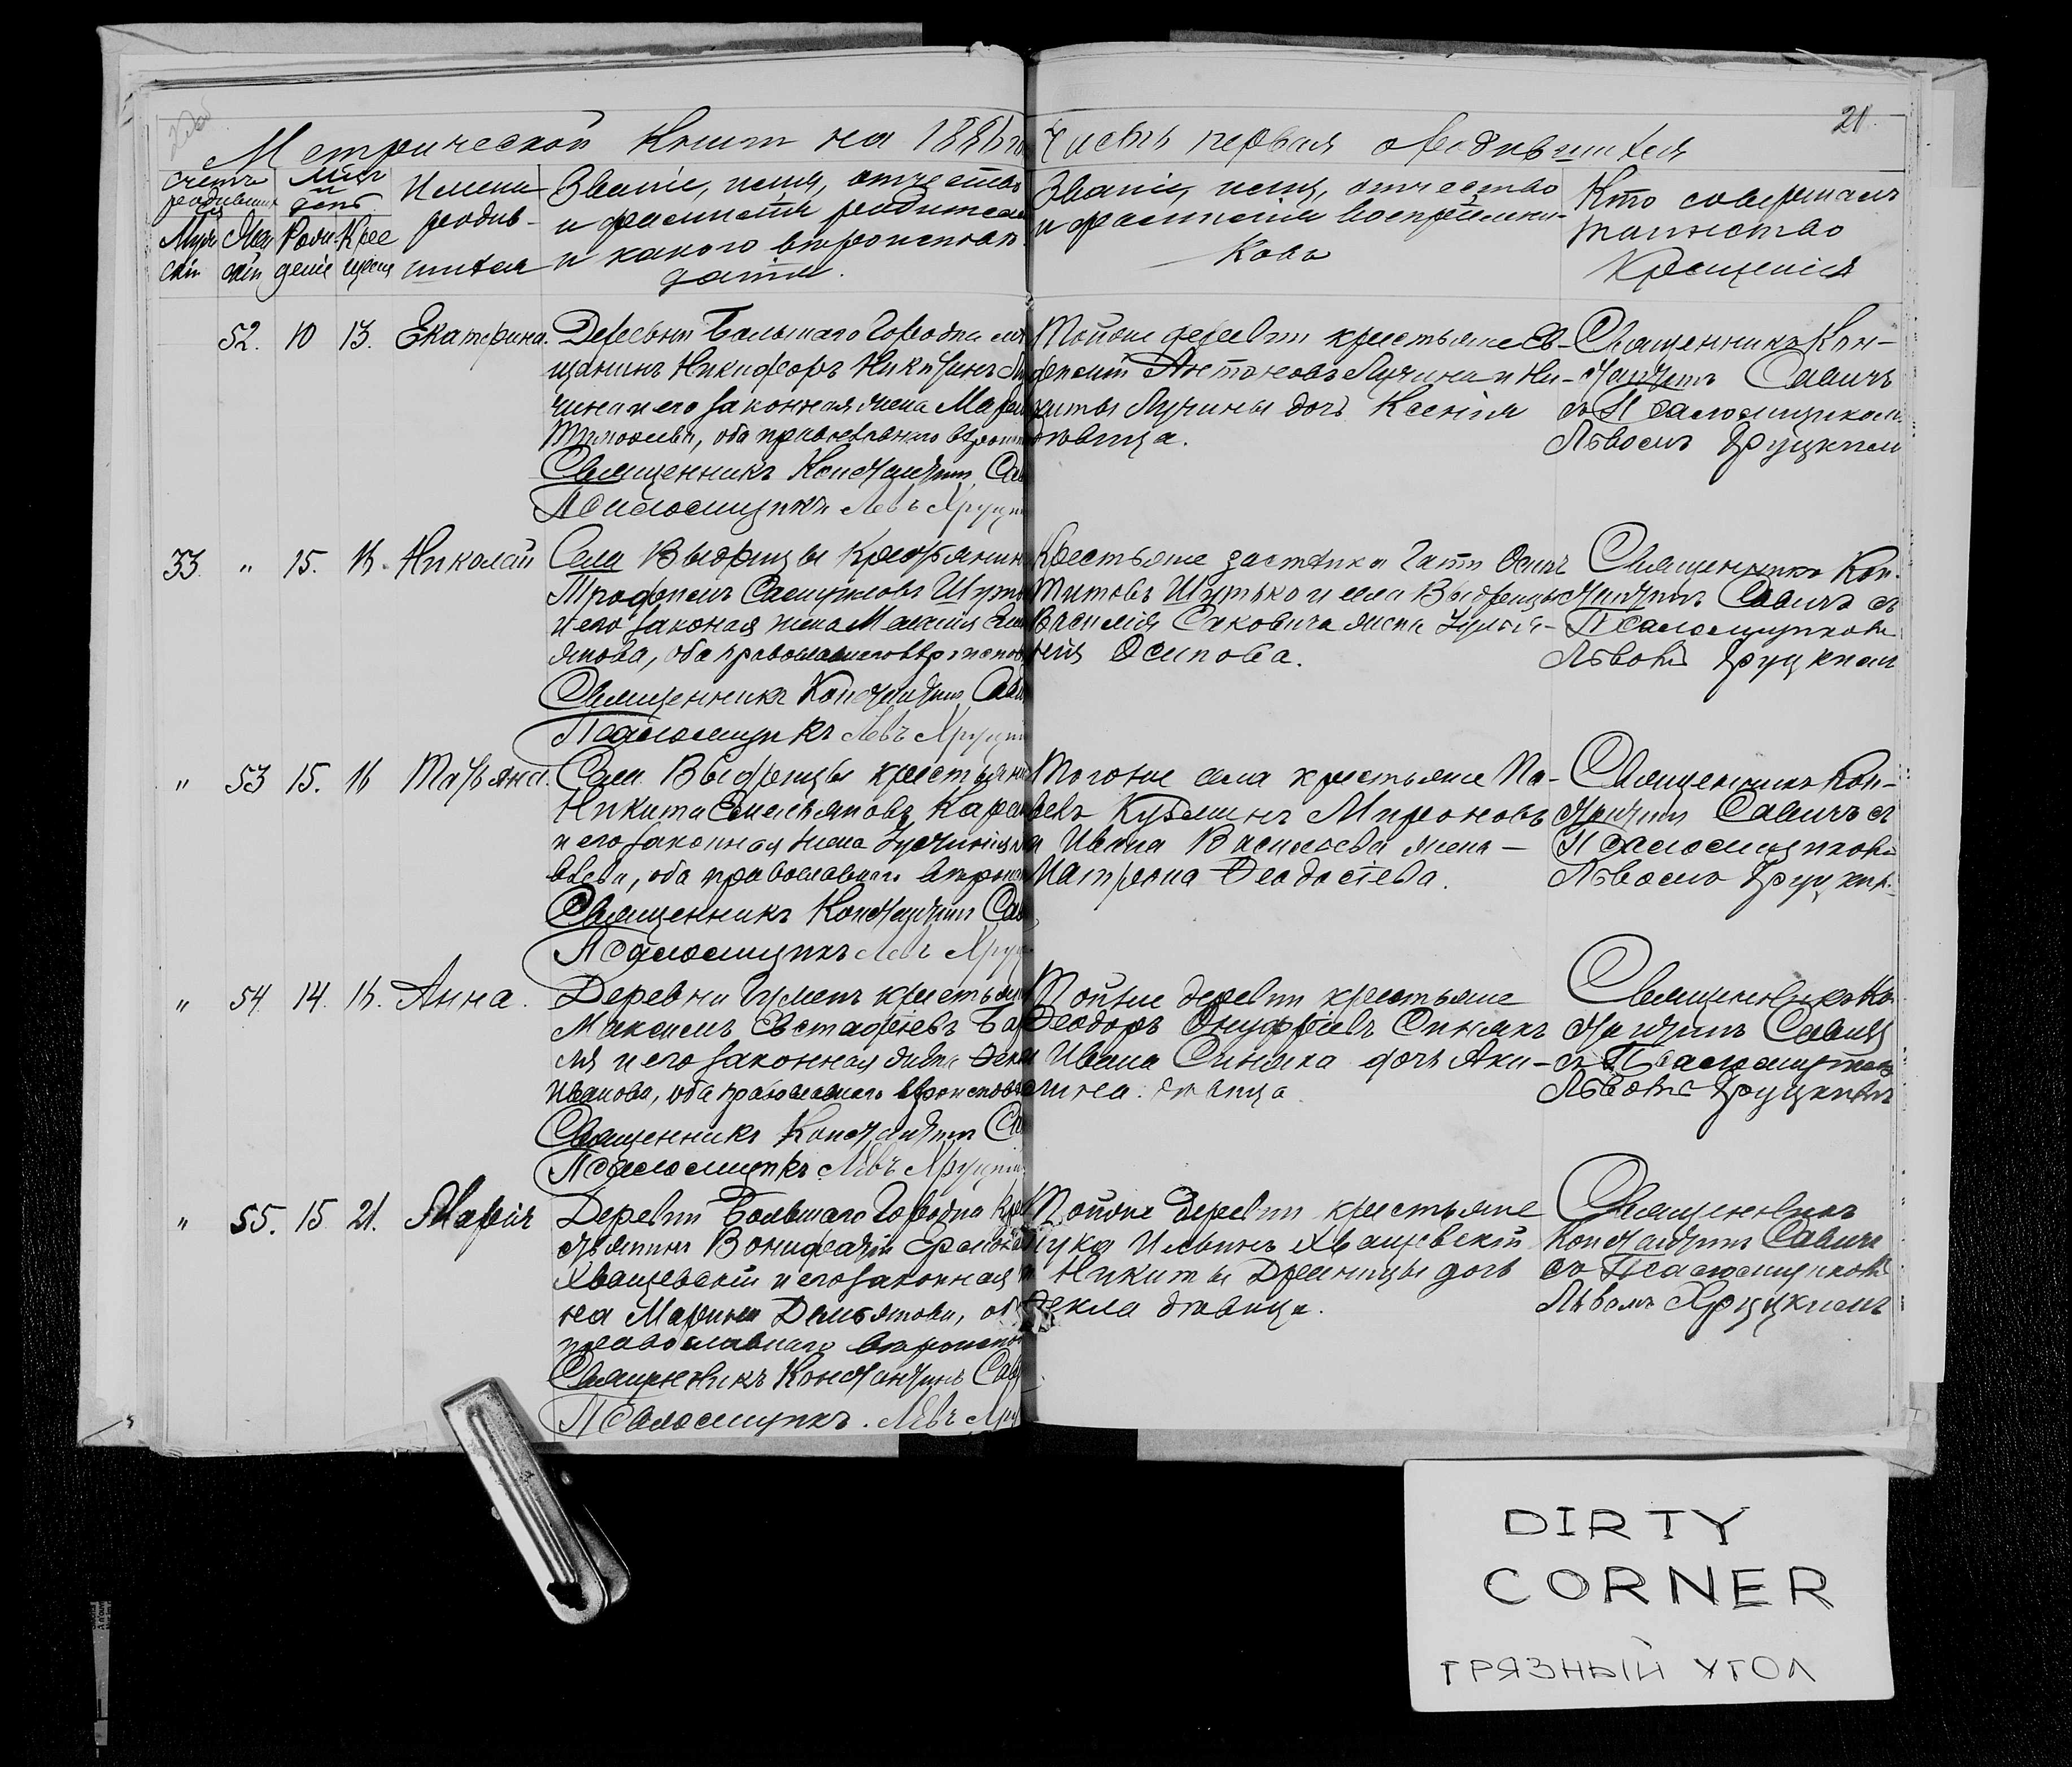 21
Метрической Книги на 1886 го
Часть первая о родившихся
Счетъ родившихся
Мужска
Женска
Мцъ и день
Рожденіе
Крещеніе
Имена
родив-
шихся
Званіе, имя, отчество
и фамилія родителей
и какого вѣроисповѣ-
данія.
Званіе, имя, отчество
и фамилія воспріемни-
ковъ
Кто совершалъ
таинство
Крещенія
52. 10 13. Екатерина.
Деревни Большаго Городка мѣ
щанинъ Никифоръ Никитинъ Лу
чина и его законная жена
оба православнаго вѣроисп
Священникъ Константинъ Сав
Псаломщикъ Левъ Хруцкі
Тойже деревни крестьяне Ев-
Антоновъ Лучина и Ни-
киты Лучины дочь Ксенія
дѣвица.
Священникъ Кон-
стантинъ Савичъ
съ Псаломщикомъ
Львомъ Хруцкимъ
33. " 15. 16. Николай
Села Выдрицы Крестьянинъ
Трофимъ Самуиловъ Шуть
и его законая жена
оба православнаго вѣроисповѣ
Священникъ Константинъ Сави
Псаломщикъ Левъ Хруцкі
Крестьяне застѣнка Гати Осипъ
Титовъ Шутько и села Выдрицы
Василія Саковича жена
Осипова.
Священникъ Кон-
стантинъ Савичъ съ
Псаломщикомъ
Львомъ Хруцкимъ
" 53 15. 16 Татьяна.
Села Выдрицы крестьянин
Никита Емельяновъ
и его законная жена
оба православнаго вѣроисп
Священникъ Константинъ Сав
Псаломщикъ Левъ Хруц
Тогоже села крестьяне Па-
велъ Кузьминъ Мироновъ
и Ивана Васильева жена —
Матрона Ѳеодосіева.
Священникъ Кон-
стантинъ Савичъ съ
Псаломщикомъ
Львомъ Хруцким
" 54. 14. 16. Анна.
Деревни крестьян
Максимъ Евстафіевъ
и его законная жена Ѳекла
Иванова, оба православнаго вѣроисповѣ
Священникъ Константинъ Са
Псаломщикъ Левъ Хруцкій
Тойже деревни крестьяне
Ѳеодоръ Онуфріевъ Синякъ
и Ивана Синяка дочь Аки-
лина дѣвица.
Священникъ Ко
стантинъ Савичъ
съ Псаломщикомъ
Львомъ Хруцкимъ
" 55. 15 21. Марія
Деревни Большаго Городка кре
стьянинъ Вонифатій
Хващевскій и его законная
на Марина Демьянова, об
православнаго вѣроиспов
Священникъ Константинъ Сав
Псаломщикъ. Левъ Хру
Тойже деревни крестьяне
Лука Ильинъ Хващевскій
и Никиты дочь
Ѳекла дѣвица.
Священникъ
Константинъ Савичъ
съ Псаломщикомъ
Львомъ Хруцкимъ
DIRTY
CORNER
ГРЯЗНЫЙ УГОЛ